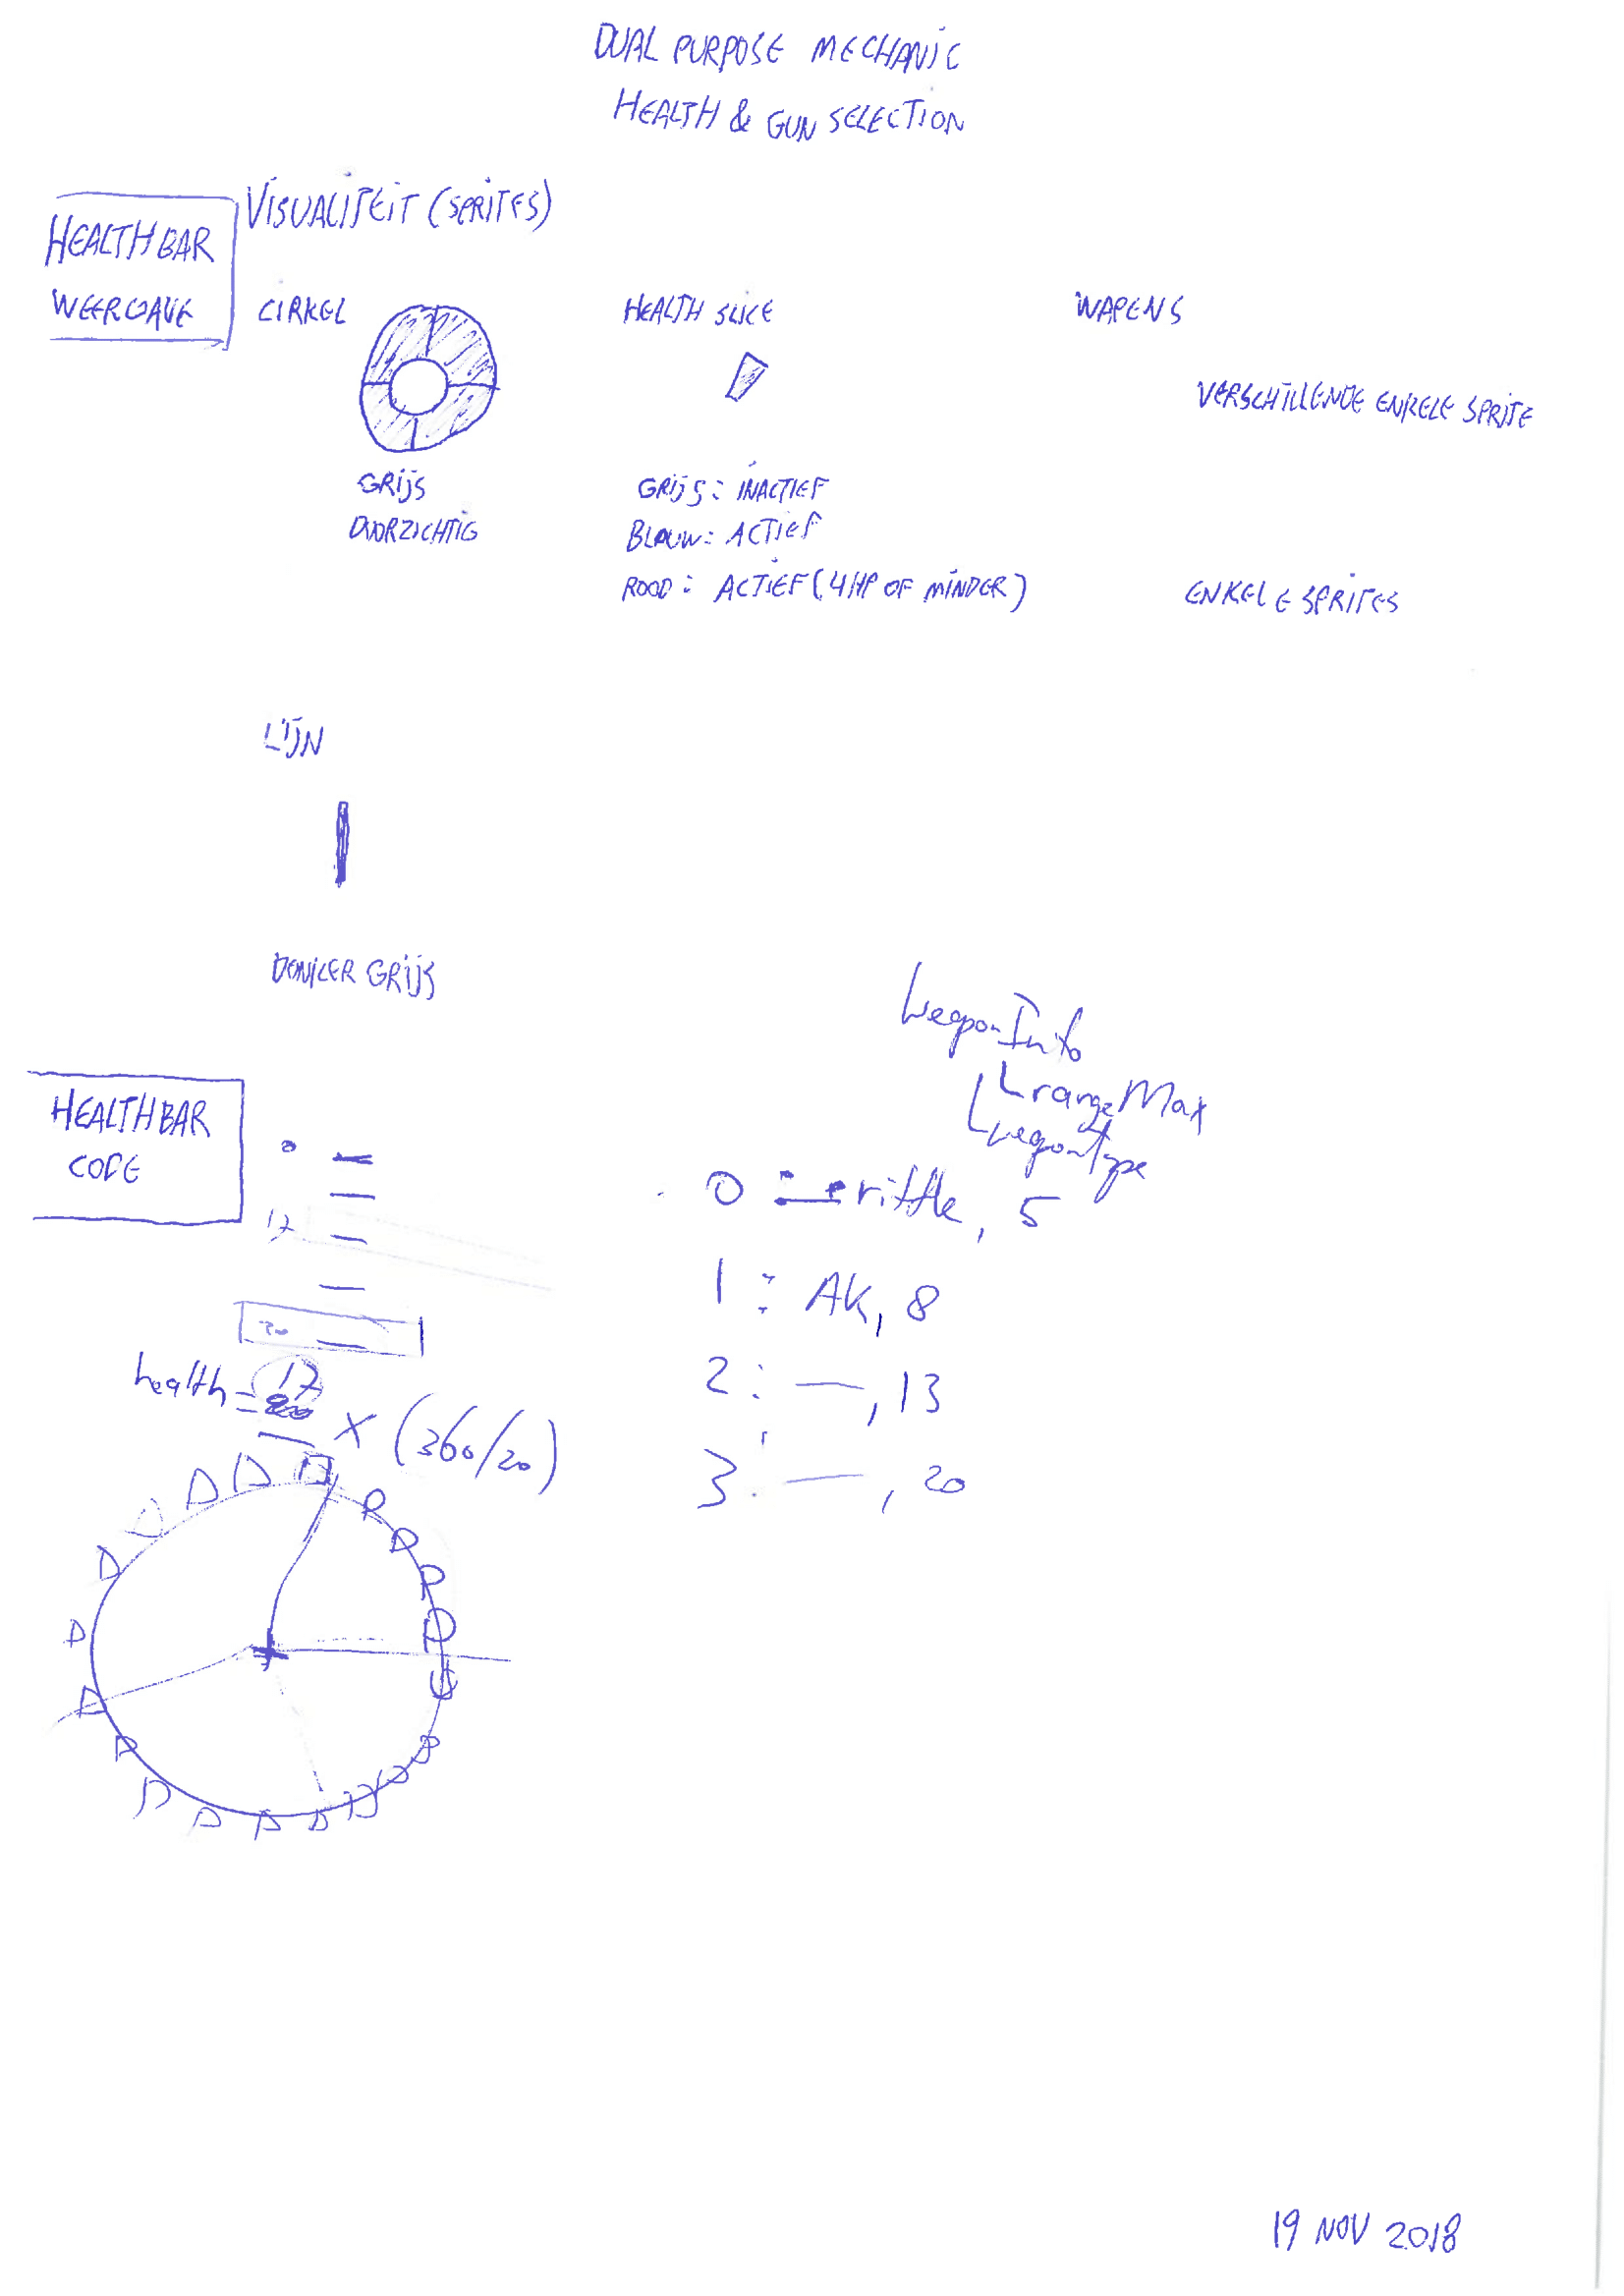 DUAL PURPOSE MECHANIC
HEALTH & GUN SELECTION
HEALTHBAR
WEERGAVE
VISUALITEIT (SPRITES)
CIRKEL
GRIJS
DOORZICHTIG
HEALTH SLICE
GRIJS: INACTIEF
BLAUW: ACTIEF
ROOD: ACTIEF (4 HP OF MINDER)
WAPENS
VERSCHILLENDE ENKELE SPRITE
ENKELE SPRITES
LIJN
DONKER GRIJS
HEALTHBAR
CODE
0
17
20
health = 17
20
X (360/20)
WeaponInfo
rangeMax
weaponType
0 : rifle, 5
1 : AK, 8
2 : —, 13
3 : —, 20
19 NOV 2018